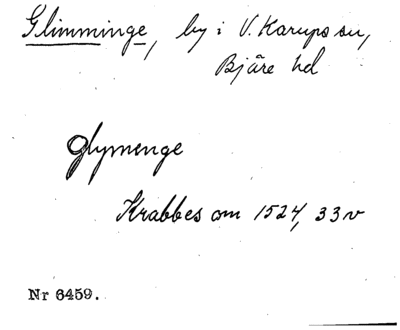 Glimminge, by i V. Karups sn,
Bjäre hd
Glymenge
Krabbes om 1524, 33v
Nr 6459.